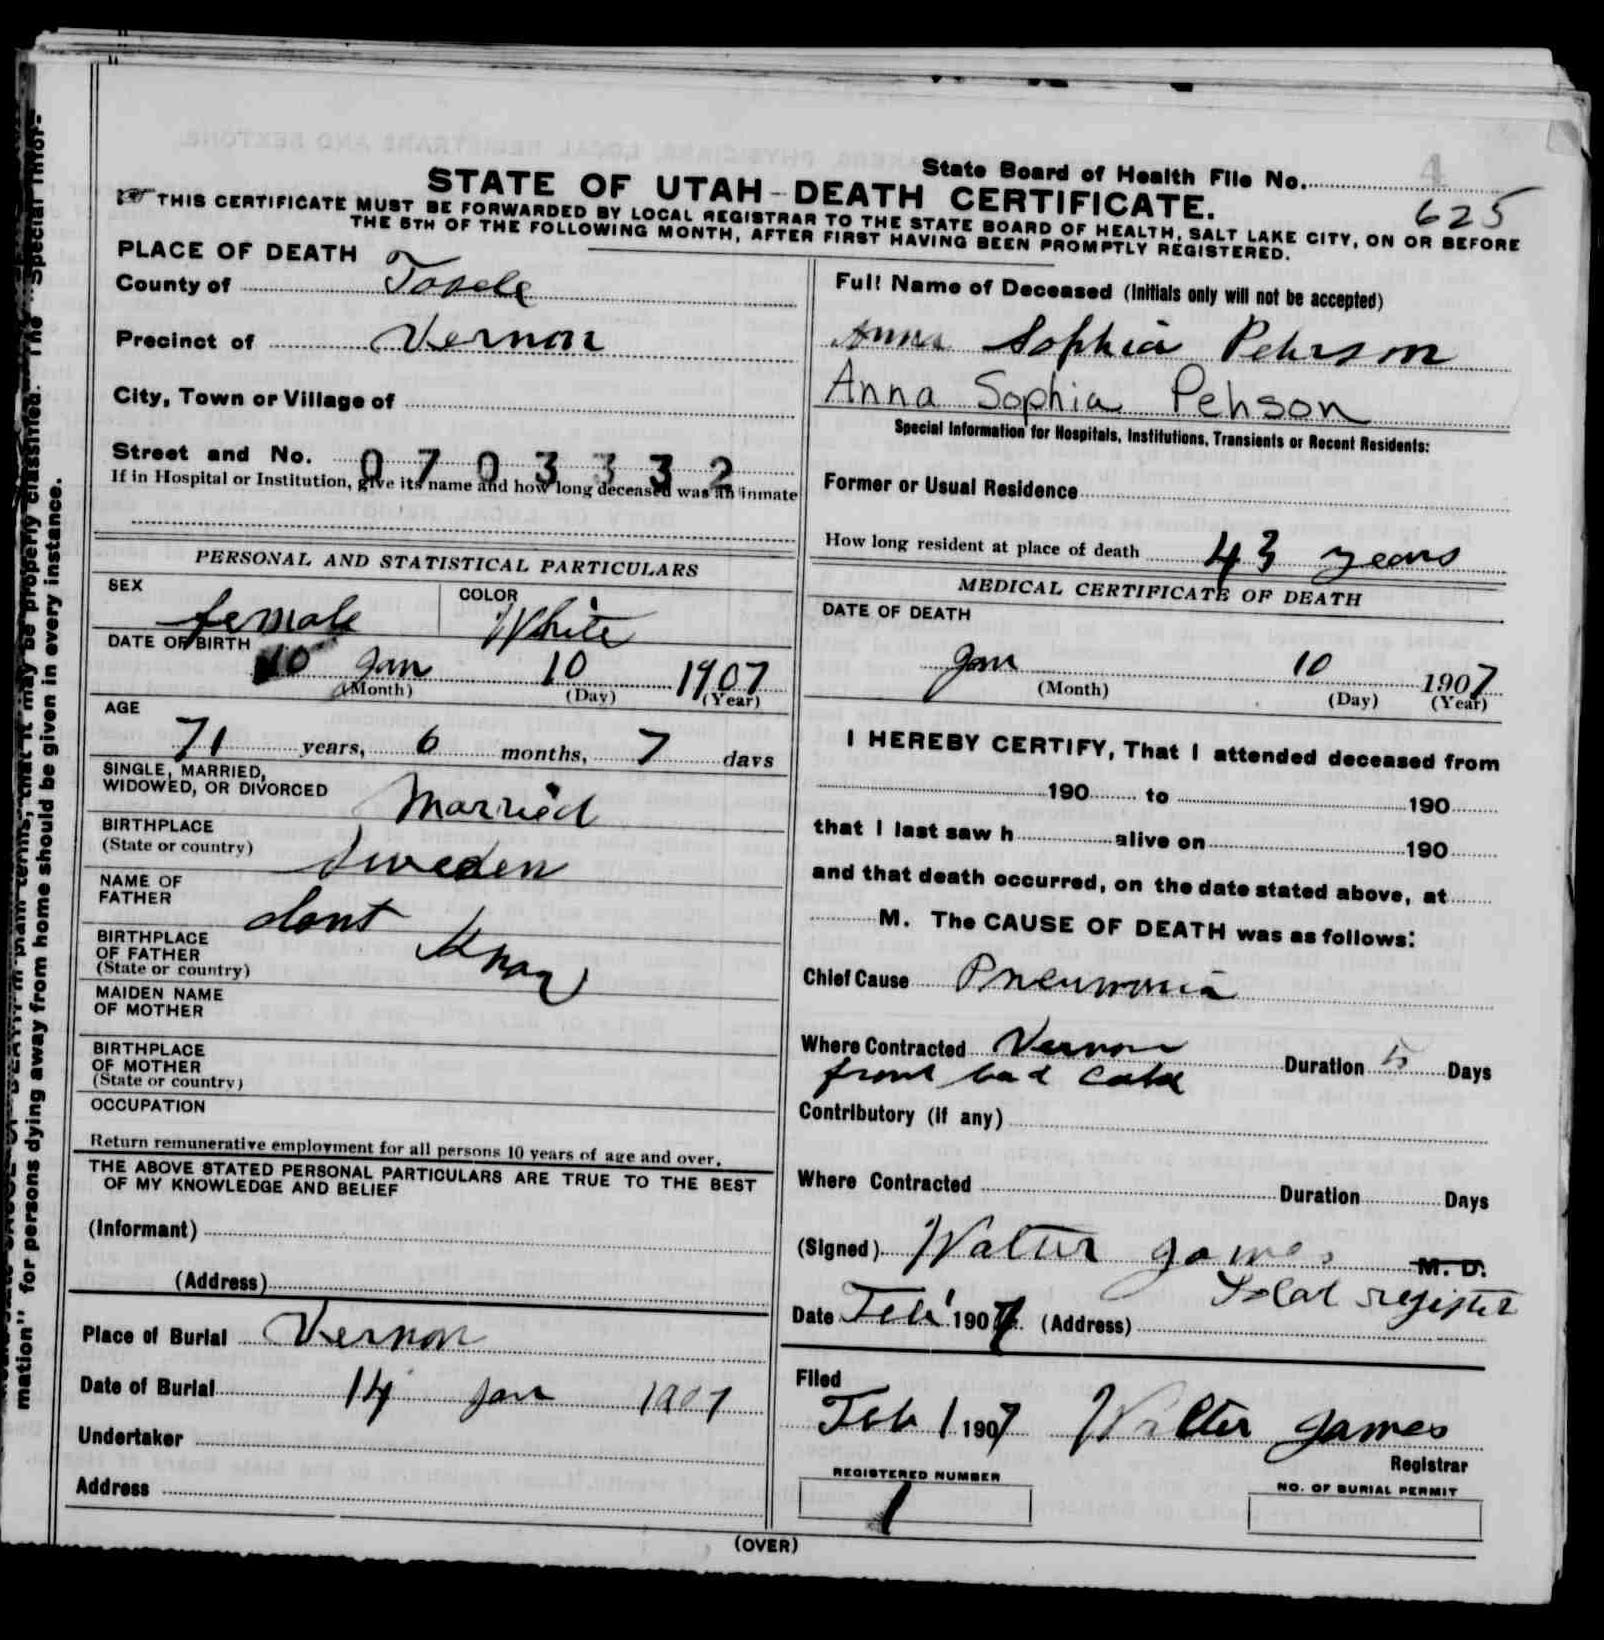 State Board of Health File No.
4
625
STATE OF UTAH–DEATH CERTIFICATE.
THIS CERTIFICATE MUST BE FORWARDED BY LOCAL REGISTRAR TO THE STATE BOARD OF HEALTH, SALT LAKE CITY, ON OR BEFORE
THE 5TH OF THE FOLLOWING MONTH, AFTER FIRST HAVING BEEN PROMPTLY REGISTERED.
PLACE OF DEATH
County of Tooele
Precinct of Vernon
City, Town or Village of
Street and No. 0703332
If in Hospital or Institution, give its name and how long deceased was an inmate
PERSONAL AND STATISTICAL PARTICULARS
SEX
female
COLOR
White
DATE OF BIRTH
10 Jan 10 1907
(Month) (Day) (Year)
AGE
71 years, 6 months, 7 days
SINGLE, MARRIED,
WIDOWED, OR DIVORCED Married
BIRTHPLACE
(State or country) Sweden
NAME OF
FATHER dont Know
BIRTHPLACE
OF FATHER
(State or country)
MAIDEN NAME
OF MOTHER
BIRTHPLACE
OF MOTHER
(State or country)
OCCUPATION
Return remunerative employment for all persons 10 years of age and over.
THE ABOVE STATED PERSONAL PARTICULARS ARE TRUE TO THE BEST
OF MY KNOWLEDGE AND BELIEF
(Informant)
(Address)
Place of Burial Vernon
Date of Burial 14 Jan 1907
Undertaker
Address
Full Name of Deceased (Initials only will not be accepted)
Anna Sophia Pehrson
Anna Sophia Pehson
Special Information for Hospitals, Institutions, Transients or Recent Residents:
Former or Usual Residence
How long resident at place of death 43 years
MEDICAL CERTIFICATE OF DEATH
DATE OF DEATH
Jan 10 1907
(Month) (Day) (Year)
I HEREBY CERTIFY, That I attended deceased from
190 to 190
that I last saw h alive on 190
and that death occurred, on the date stated above, at
M. The CAUSE OF DEATH was as follows:
Chief Cause Pneumonia
Where Contracted Vernon Duration 5 Days
from bad cold
Contributory (if any)
Where Contracted Duration Days
(Signed) Walter James M. D.
Local register
Date Feb 1 1907 (Address)
Filed
Feb 1 1907 Walter James
Registrar
REGISTERED NUMBER
1
NO. OF BURIAL PERMIT
(OVER)
mation" for persons dying away from home should be given in every instance.